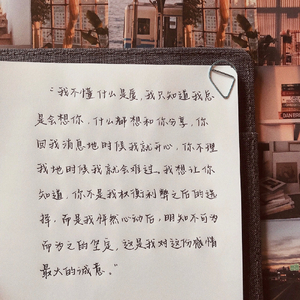 “我不懂什么是爱，我只知道我总
是会想你，什么都想和你分享，你
回我消息地时候我就开心，你不理
我地时候我就会难过，我想让你
知道，你不是我权衡利弊之后的选
择，而是我怦然心动后，明知不可为
而为之的坚定，这是我对这份感情
最大的诚意。”